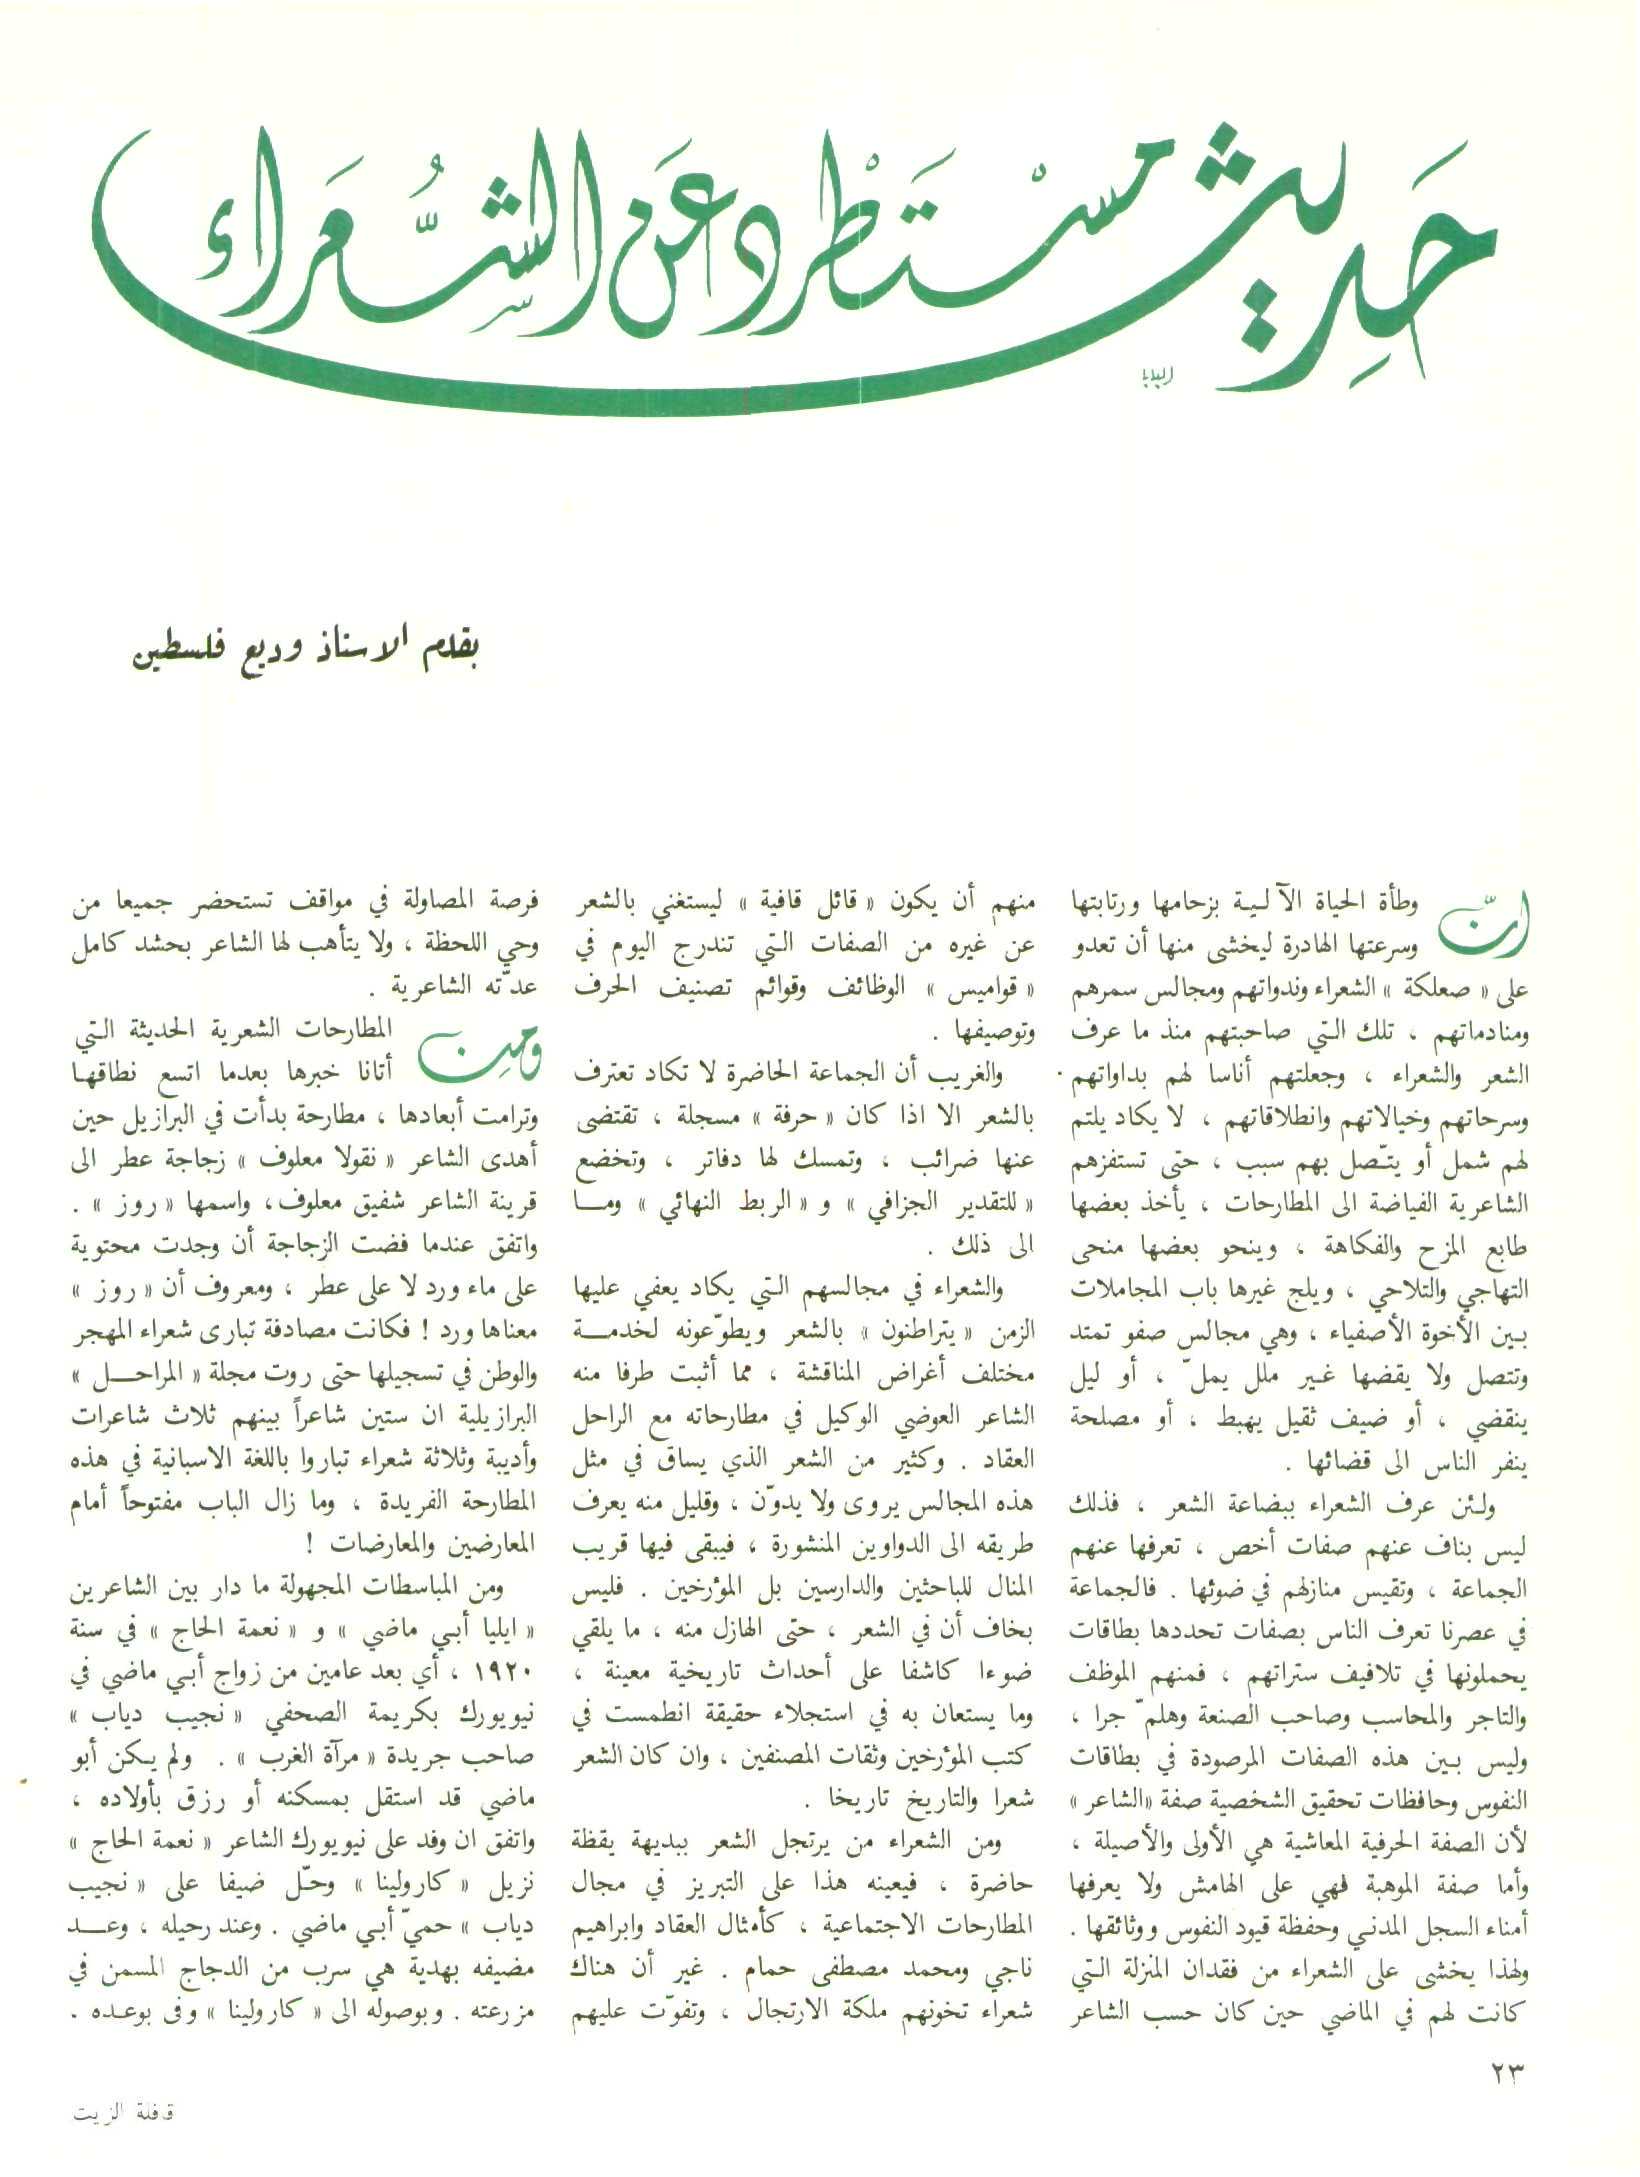 حَدِيث مسْتَطْرد عَن الشُّعَراء
بقلم الاستاذ وديع فلسطين
انّ وطأة الحياة الآلـيـة بزحامها ورتابتها
وسرعتها الهادرة ليخشى منها أن تعدو
على « صعلكة » الشعراء وندواتهم ومجالس سمرهم
ومنادماتهم ، تلك التي صاحبتهم منذ ما عرف
الشعر والشعراء ، وجعلتهم أناسا لهم بداواتهم
وسرحاتهم وخيالاتهم وانطلاقاتهم ، لا يكاد يلتم
لهم شمل أو يتّصل بهم سبب ، حتى تستفزهم
الشاعرية الفياضة الى المطارحات ، يأخذ بعضها
طابع المزح والفكاهة ، وينحو بعضها منحى
التهاجي والتلاحي ، ويلج غيرها باب المجاملات
بين الأخوة الأصفياء ، وهي مجالس صفو تمتد
وتتصل ولا يقضها غير ملل يملّ ، أو ليل
ينقضي ، أو ضيف ثقيل يهبط ، أو مصلحة
ينفر الناس الى قضائها .
ولئن عرف الشعراء ببضاعة الشعر ، فذلك
ليس بناف عنهم صفات أخص ، تعرفها عنهم
الجماعة ، وتقيس منازلهم في ضوئها . فالجماعة
في عصرنا تعرف الناس بصفات تحددها بطاقات
يحملونها في تلافيف ستراتهم ، فمنهم الموظف
والتاجر والمحاسب وصاحب الصنعة وهلمّ جرا ،
وليس بين هذه الصفات المرصودة في بطاقات
النفوس وحافظات تحقيق الشخصية صفة «الشاعر»
لأن الصفة الحرفية المعاشية هي الأولى والأصيلة ،
وأما صفة الموهبة فهي على الهامش ولا يعرفها
أمناء السجل المدني وحفظة قيود النفوس ووثائقها .
ولهذا يخشى على الشعراء من فقدان المنزلة التي
كانت لهم في الماضي حين كان حسب الشاعر
منهم أن يكون « قائل قافية » ليستغني بالشعر
عن غيره من الصفات التي تندرج اليوم في
« قواميس » الوظائف وقوائم تصنيف الحرف
وتوصيفها .
والغريب أن الجماعة الحاضرة لا تكاد تعترف
بالشعر الا اذا كان « حرفة » مسجلة ، تقتضى
عنها ضرائب ، وتمسك لها دفاتر ، وتخضع
« للتقدير الجزافي » و « الربط النهائي » ومـا
الى ذلك .
والشعراء في مجالسهم التي يكاد يعفي عليها
الزمن « يتراطنون » بالشعر ويطوّعونه لخدمـــة
مختلف أغراض المناقشة ، مما أثبت طرفا منه
الشاعر العوضي الوكيل في مطارحاته مع الراحل
العقاد . وكثير من الشعر الذي يساق في مثل
هذه المجالس يروى ولا يدوّن ، وقليل منه يعرف
طريقه الى الدواوين المنشورة ، فيبقى فيها قريب
المنال للباحثين والدارسين بل المؤرخين . فليس
بخاف أن في الشعر ، حتى الهازل منه ، ما يلقي
ضوءا كاشفا على أحداث تاريخية معينة ،
وما يستعان به في استجلاء حقيقة انطمست في
كتب المؤرخين وثقات المصنفين ، وان كان الشعر
شعرا والتاريخ تاريخا .
ومن الشعراء من يرتجل الشعر ببديهة يقظة
حاضرة ، فيعينه هذا على التبريز في مجال
المطارحات الاجتماعية ، كأمثال العقاد وابراهيم
ناجي ومحمد مصطفى حمام . غير أن هناك
شعراء تخونهم ملكة الارتجال ، وتفوّت عليهم
فرصة المصاولة في مواقف تستحضر جميعا من
وحي اللحظة ، ولا يتأهب لها الشاعر بحشد كامل
عدّته الشاعرية .
ومن المطارحات الشعرية الحديثة التي
أتانا خبرها بعدما اتسع نطاقهـا
وترامت أبعادها ، مطارحة بدأت في البرازيل حين
أهدى الشاعر « نقولا معلوف » زجاجة عطر الى
قرينة الشاعر شفيق معلوف، واسمها « روز » .
واتفق عندما فضت الزجاجة أن وجدت محتوية
على ماء ورد لا على عطر ، ومعروف أن « روز »
معناها ورد ! فكانت مصادفة تبارى شعراء المهجر
والوطن في تسجيلها حتى روت مجلة « المراحـــل »
البرازيلية ان ستين شاعراً بينهم ثلاث شاعرات
وأديبة وثلاثة شعراء تباروا باللغة الاسبانية في هذه
المطارحة الفريدة ، وما زال الباب مفتوحاً أمام
المعارضين والمعارضات !
ومن المباسطات المجهولة ما دار بين الشاعرين
« ايليا أبي ماضي » و « نعمة الحاج » في سنة
١٩٢٠ ، أي بعد عامين من زواج أبي ماضي في
نيويورك بكريمة الصحفي « نجيب دياب »
صاحب جريدة « مرآة الغرب » . ولم يكن أبو
ماضي قد استقل بمسكنه أو رزق بأولاده ،
واتفق ان وفد على نيويورك الشاعر « نعمة الحاج »
نزيل « كارولينا » وحلّ ضيفا على « نجيب
دياب » حميّ أبي ماضي . وعند رحيله ، وعــد
مضيفه بهدية هي سرب من الدجاج المسمن في
مزرعته . وبوصوله الى « كارولينا » وفى بوعـده .
٢٣
قافلة الزيت